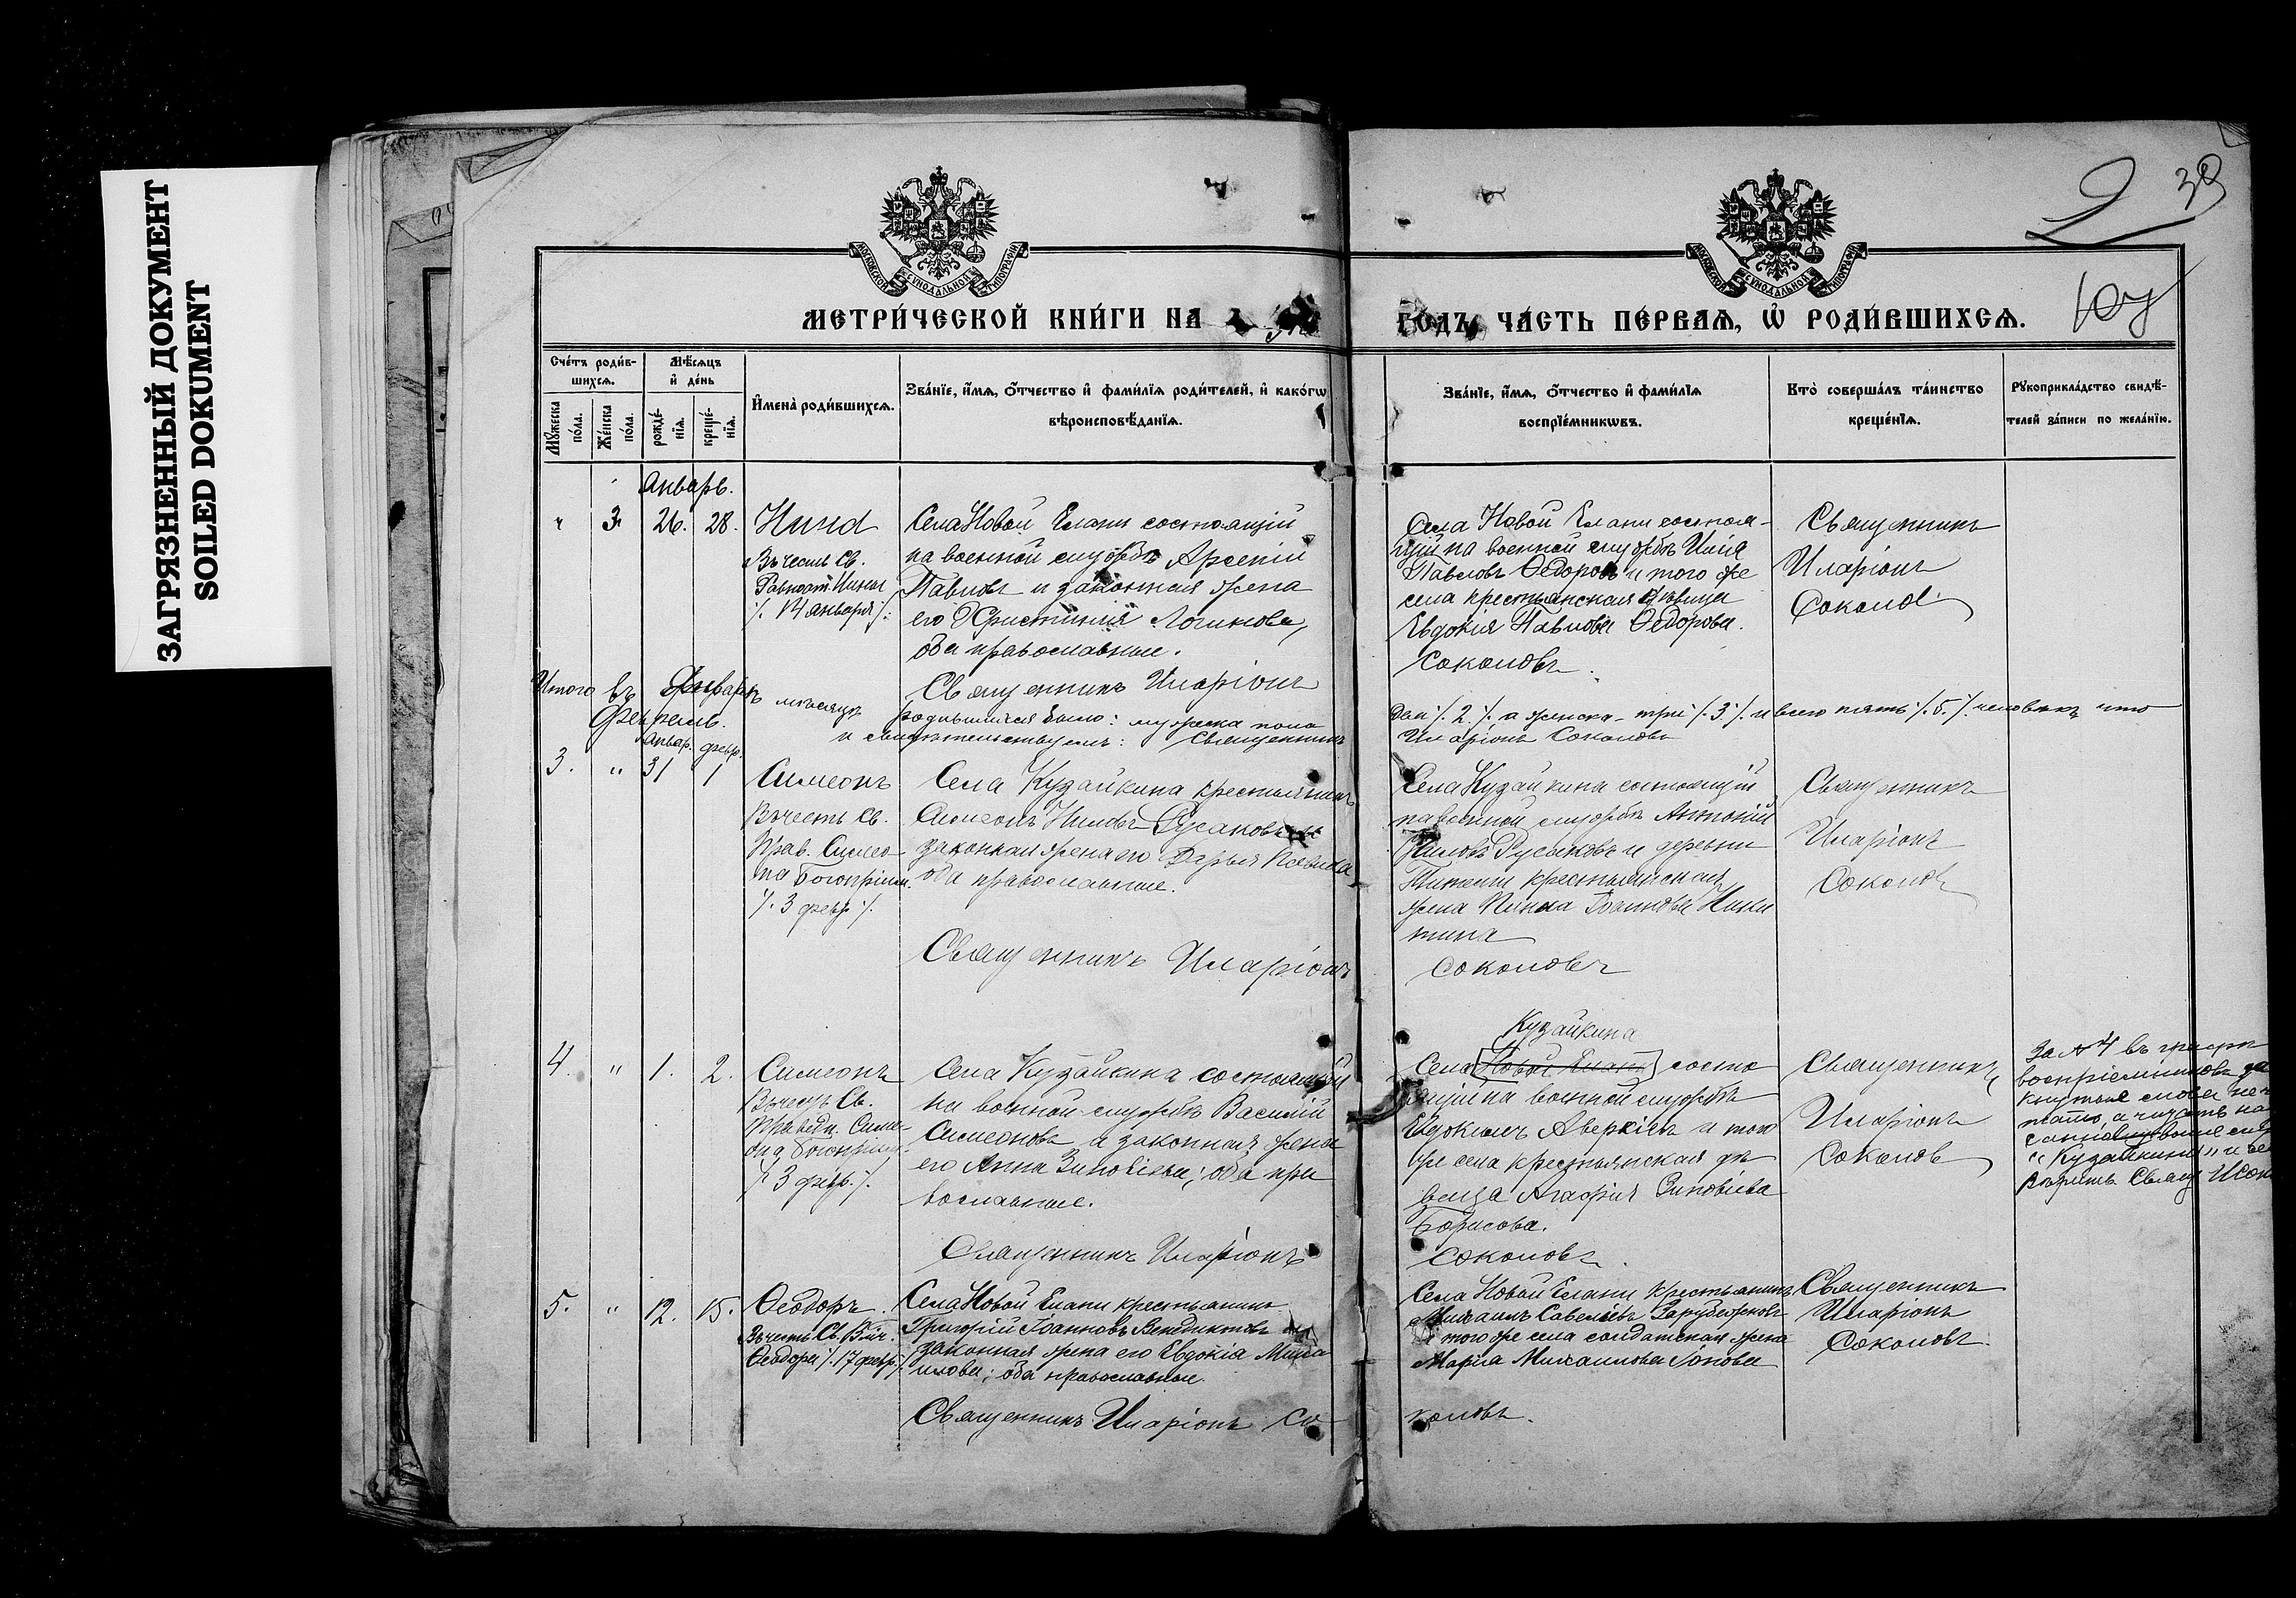 ЗАГРЯЗНЕННЫЙ ДОКУМЕНТ
SOILED DOKUMENT
2 39
МОСКОВСКОЙ СѴНОДАЛЬНОЙ ТИПОГРАФІИ
МОСКОВСКОЙ СѴНОДАЛЬНОЙ ТИПОГРАФІИ
МЕТРИ́ЧЕСКОЙ КНИ́ГИ НА
ГОДЪ, ЧА́СТЬ ПЕ́РВАѦ, Ѡ҆ РОДИ́ВШИХСѦ.
Сче́тъ роди́в-
шихсѧ.
Мѣ́сѧцъ
и҆ де́нь
Мꙋ́жеска
по́ла.
Же́нска
по́ла.
рожде́-
нїѧ.
креще́-
нїѧ.
И҆мена̀ роди́вшихсѧ.
Зва́нїе, и҆́мѧ, ѻ҆́тчество и҆ фами́лїѧ роди́телей, и҆ како́гѡ
вѣроисповѣ́данїѧ.
Зва́нїе, и҆́мѧ, ѻ҆́тчество и҆ фами́лїѧ
воспрїе́мникѡвъ.
Кто̀ соверша́лъ та́инство
креще́нїѧ.
Рꙋкоприкла́дство свидѣ́-
телей за́писи по жела́нїю.
Январь.
" 3. 26. 28.
Нина
Въ честь Св.
Равноап. Нины
/. 14 января /.
Села Новой Елани состоящій
на военной службѣ Арсеній
Павловъ и законная жена
его Христинія Логинова,
оба православные.
Священникъ Иларіонъ
Села Новой Елани состоя-
щій на военной службѣ
Павловъ Ѳедоровъ и того же
села крестьянская дѣвица
Евдокія Павлова Ѳедорова.
Соколовъ.
Священникъ
Иларіонъ
Соколовъ
Итого въ Январѣ мѣсяцѣ родившихся было: мужеска пола
два /. 2. /. а женска - три /. 3 /. и всего пять /. 5. /. человѣкъ что
и свидѣтельствуемъ: Священникъ
Иларіонъ Соколовъ
Февраль.
Январ. февр.
3. " 31 1
Симеонъ
Въ честь Св.
Прав. Симео-
на Богопріим.
/. 3 февр. /.
Села Кузайкина крестьянинъ
Симеонъ Ниловъ Русаковъ и
законная жена его Дарья
оба православные.
Священникъ Иларіонъ
Села Кузайкина состоящій
на военной службѣ Антоній
Ниловъ Русаковъ и деревни
крестьянская
жена Іоаннова Ники
тина
Соколовъ
Священникъ
Иларіонъ
Соколовъ
4. " 1. 2.
Симеонъ
Въ честь Св.
Праведн. Симе-
она Богопріим.
/. 3 февр. /.
Села Кузайкина состоящій
на военной службѣ Василій
Симеоновъ и законная жена
его Анна Зиновіева; оба пра
вославные.
Священникъ Иларіонъ
Кузайкина
Села Новой Елани состо
ящій на военной службѣ
Евдокимъ Аверкіевъ и того
же села крестьянская дѣ
вица Агафія Зиновіева
Борисова.
Соколовъ.
Священникъ
Иларіонъ
Соколовъ
За № 4 въ графѣ
воспріемниковъ за
кнутые слова не
а читать
"Кузайкина" и
вѣрить Свящ. И Сок
5. " 12. 15.
Ѳеодоръ.
Въ честь Св. Влч.
Ѳеодора /. 17 февр. /.
Села Новой Елани крестьянинъ
Григорій Іоанновъ Венедиктовъ и
законная жена его Евдокія Миха
илова; оба православные.
Священникъ Иларіонъ Со-
Села Новой Елани крестьянинъ
Михаилъ Савельевъ Зарубежновъ
и того же села солдатская жена
Марія Михаилова Іонова
коловъ.
Священникъ
Иларіонъ
Соколовъ.